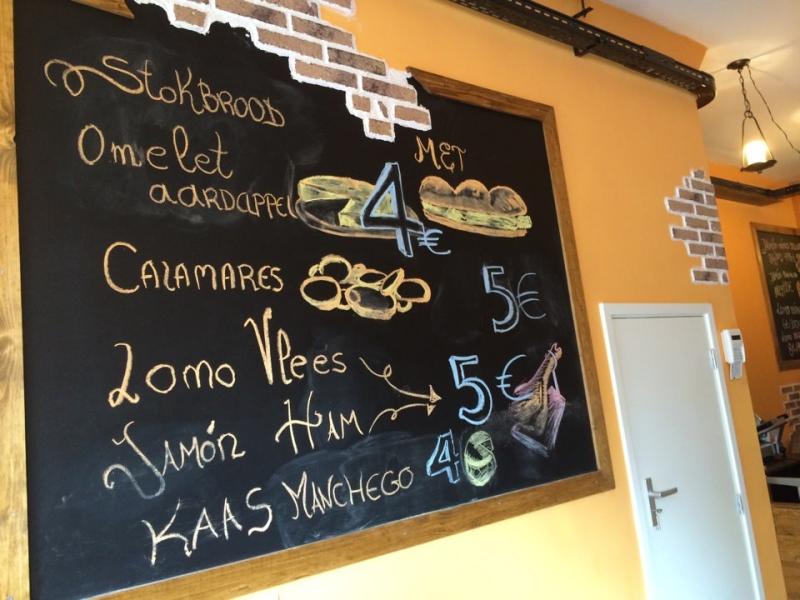 StokBROOD MET
Omelet
AARDAPPEL 4€
CALAMARES 5€
Lomo Vlees
5€
JAMÓN HAM
KAAS MANCHEGO 4€